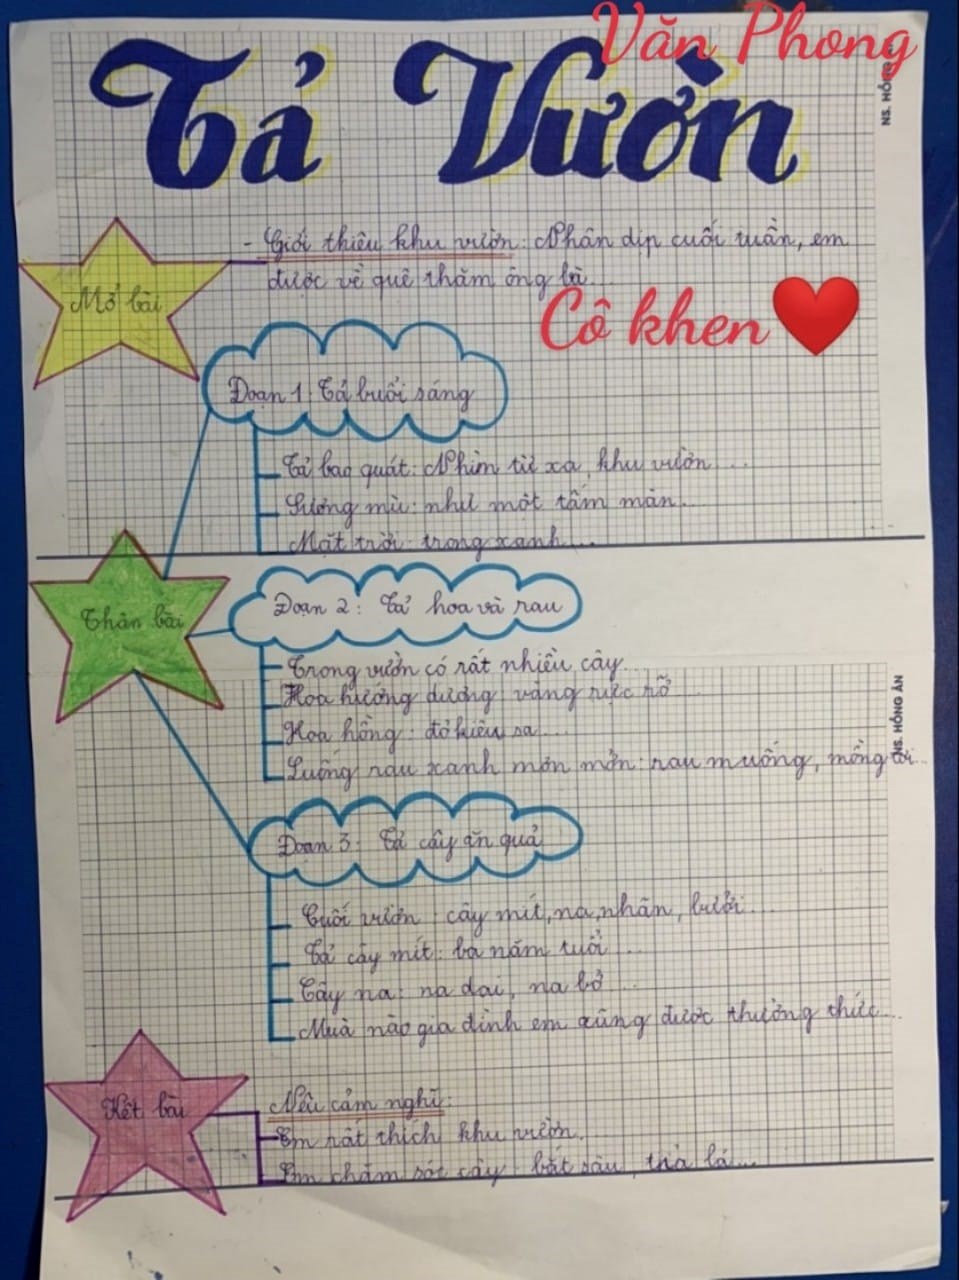 Văn Phong
Tả Vườn
NS. HỒNG ÂN
- Giới thiệu khu vườn: Nhân dịp cuối tuần, em
được về quê thăm ông bà...
Mở bài
Cô khen
Đoạn 1: Tả buổi sáng
Tả bao quát: Nhìn từ xa khu vườn...
Sương mù: như một tấm màn...
Mặt trời: trong xanh...
Thân bài
Đoạn 2: Tả hoa và rau
Trong vườn có rất nhiều cây...
Hoa hướng dương: vàng rực rỡ...
Hoa hồng: đỏ kiêu sa...
Luống rau xanh mơn mởn: rau muống, mồng tơi...
NS. HỒNG ÂN
Đoạn 3: Tả cây ăn quả
Cuối vườn: cây mít, na, nhãn, bưởi...
Tả cây mít: ba năm tuổi...
Cây na: na dai, na bở...
Mùa nào gia đình em cũng được thưởng thức...
Kết bài
Nêu cảm nghĩ:
Em rất thích khu vườn.
Em chăm sót cây: bắt sâu, tỉa lá...